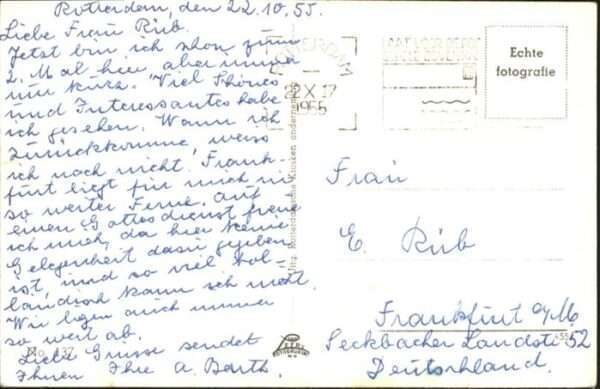 Rotterdam, den 22.10.55.
Liebe Frau Rüb.
Jetzt bin ich schon zum
2. Mal hier aber immer
nur kurz. Viel Schönes
und Interessantes habe
ich gesehen. Wann ich
zurückkomme, weiss
ich noch nicht. Frank-
furt liegt für mich in
so weiter Ferne. Auf
einen Gottesdienst freue
ich mich, da hier keine
Gelegenheit dazu gegeben
ist, und so viel hol-
ländisch kann ich nicht.
Wir liegen auch immer
so weit ab.
Liebe Grüsse sendet
Ihnen Ihre A. Barth.
ROTTERDAM
22 X 17
1955
Echte
fotografie
Frau
E. Rüb
Frankfurt a/M
Seckbacher Landstr 52
Deutschland.
ROTTERDAM